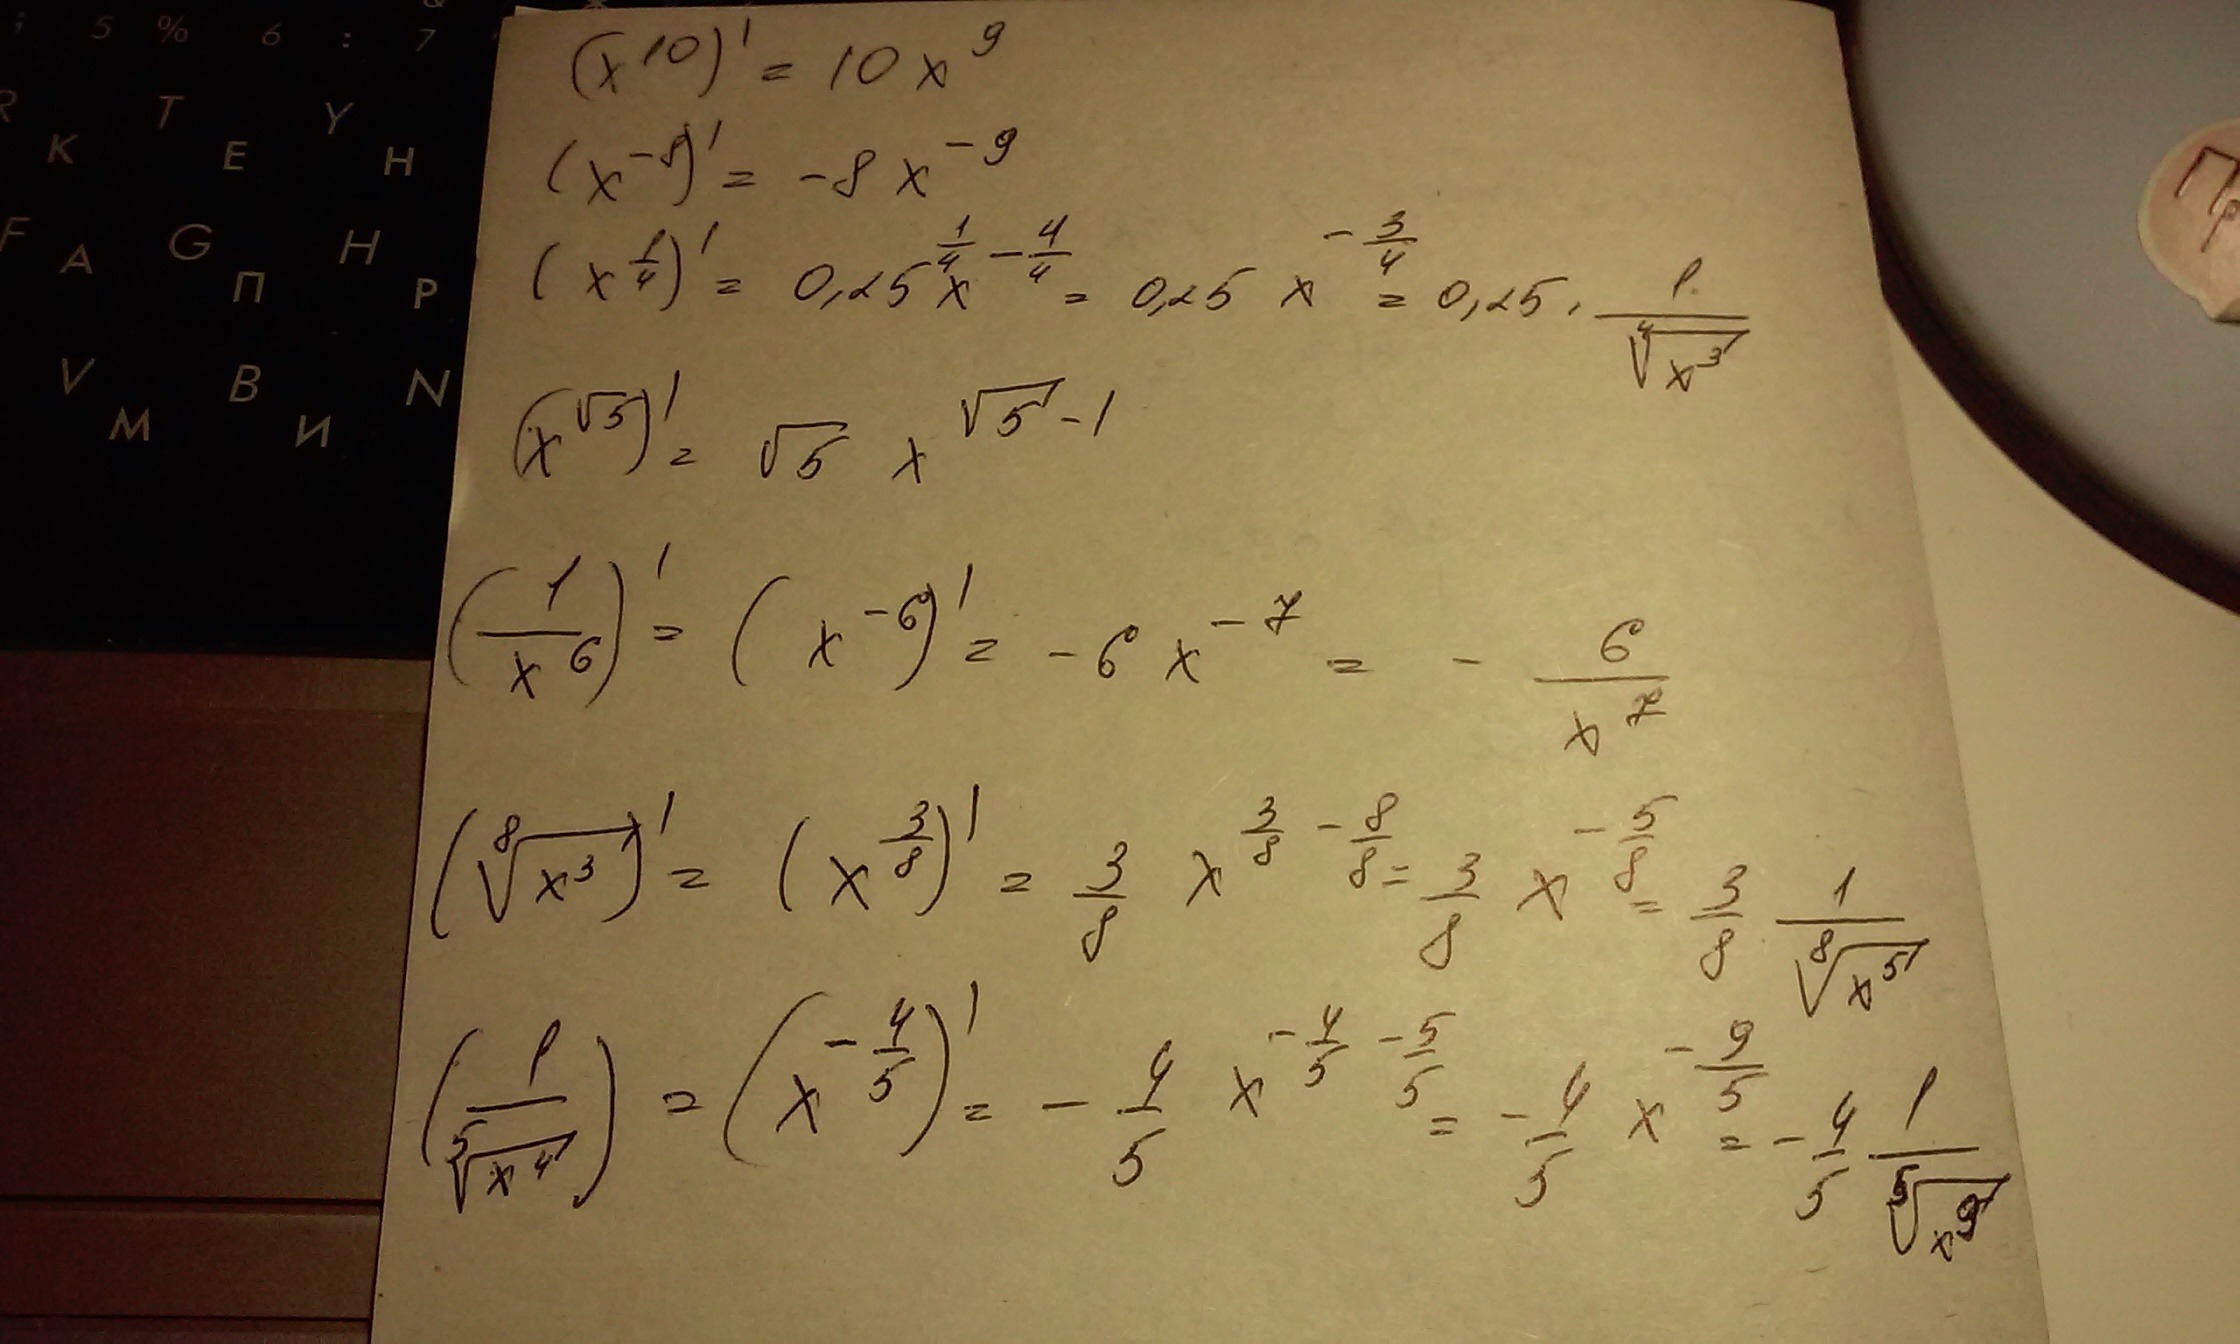 ; 5 % 6 : 7
R T Y
К Е Н
F G H
А П Р
V B N
М И
Пр
(x^10)' = 10 x^9
(x^-8)' = -8 x^-9
(x^(1/4))' = 0,25 x^(1/4 - 4/4) = 0,25 x^(-3/4) = 0,25 · 1/⁴√(x^3)
(x^√5)' = √5 x^(√5 - 1)
(1/x^6)' = (x^-6)' = -6 x^-7 = - 6/x^7
(⁸√(x^3))' = (x^(3/8))' = 3/8 x^(3/8 - 8/8) = 3/8 x^(-5/8) = 3/8 1/⁸√(x^5)
(1/⁵√(x^4)) = (x^(-4/5))' = - 4/5 x^(-4/5 - 5/5) = - 4/5 x^(-9/5) = - 4/5 1/⁵√(x^9)